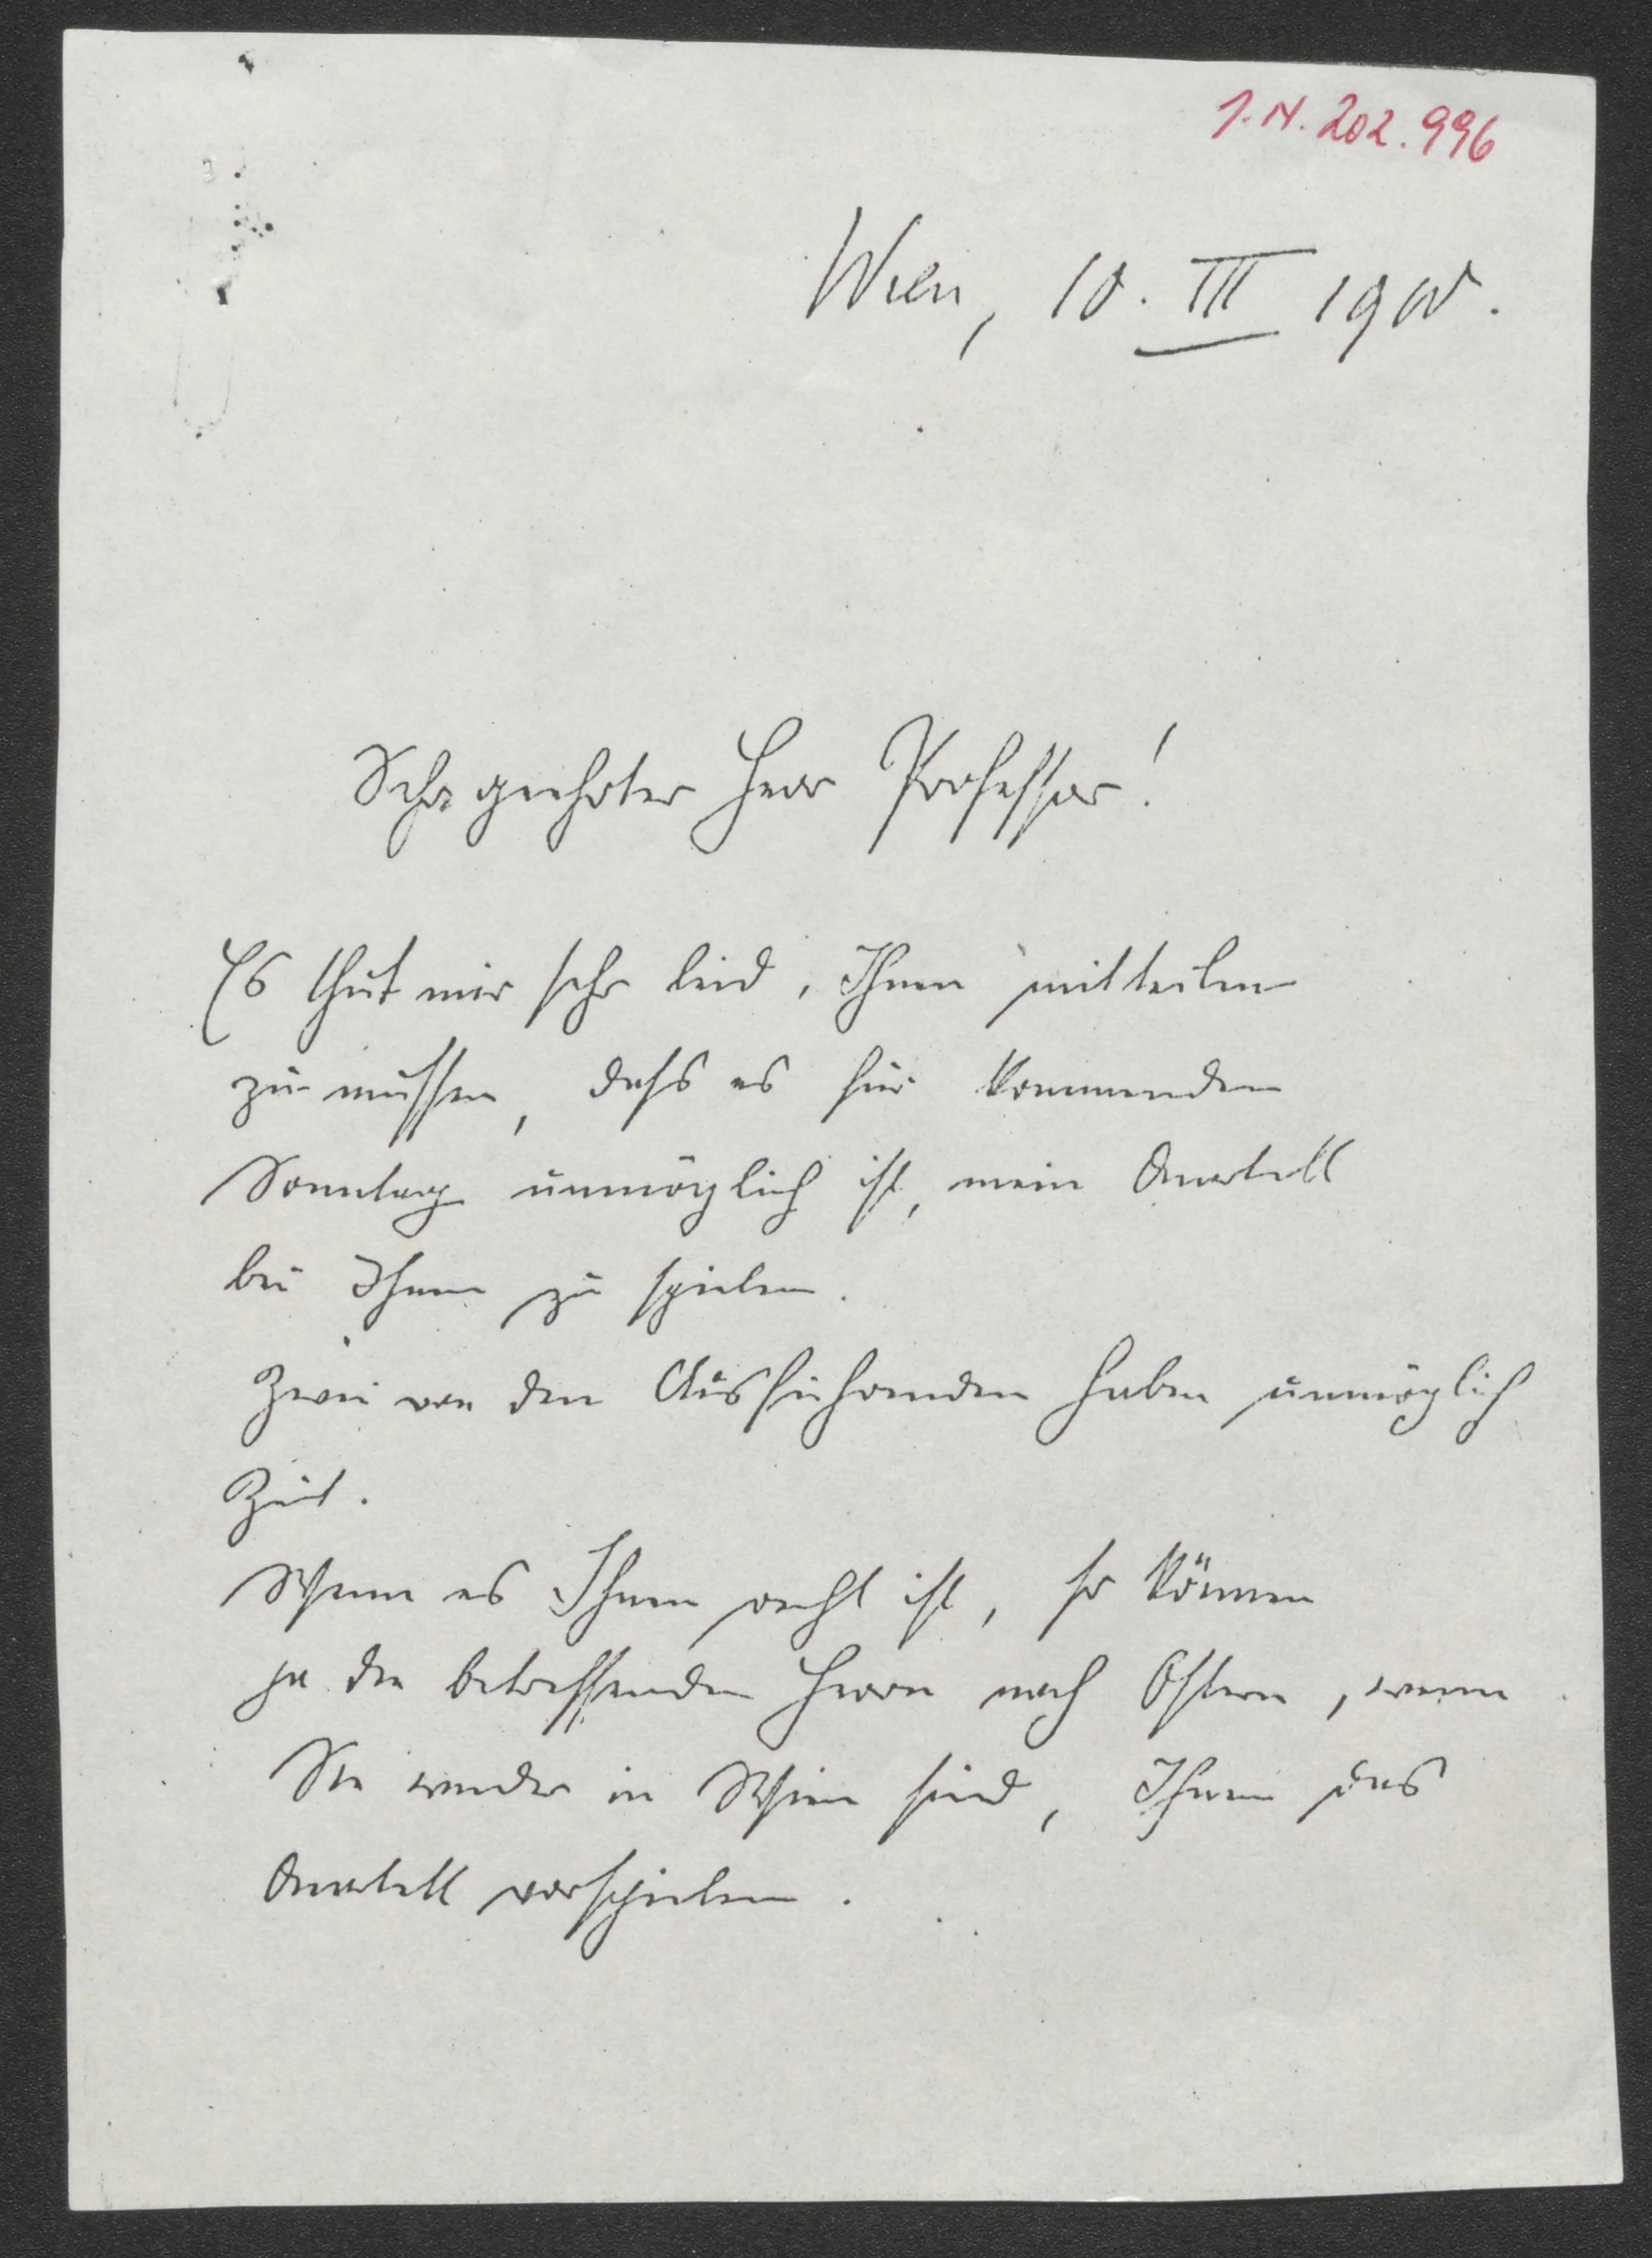 I.N. 202.996
Wien, 10. III 1900.
Sehr geehrter Herr Professor!
Es thut mir sehr leid, Ihnen mitteilen
zu müssen, dass es für kommenden
Sonntag unmöglich ist, mein Quartett
bei Ihnen zu spielen.
Zwei von den Ausführenden haben unmöglich
Zeit.
Wenn es Ihnen recht ist, so können
ja die betreffenden Herren nach Ostern, wenn
Sie wieder in Wien sind, Ihnen das
Quartett vorspielen.